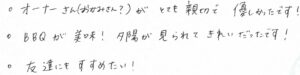 ○ オーナーさん(おかみさん?)が とても親切で 優しかったです!
○ BBQが美味! 夕陽が見られてきれいだったです!
○ 友達にもすすめたい!